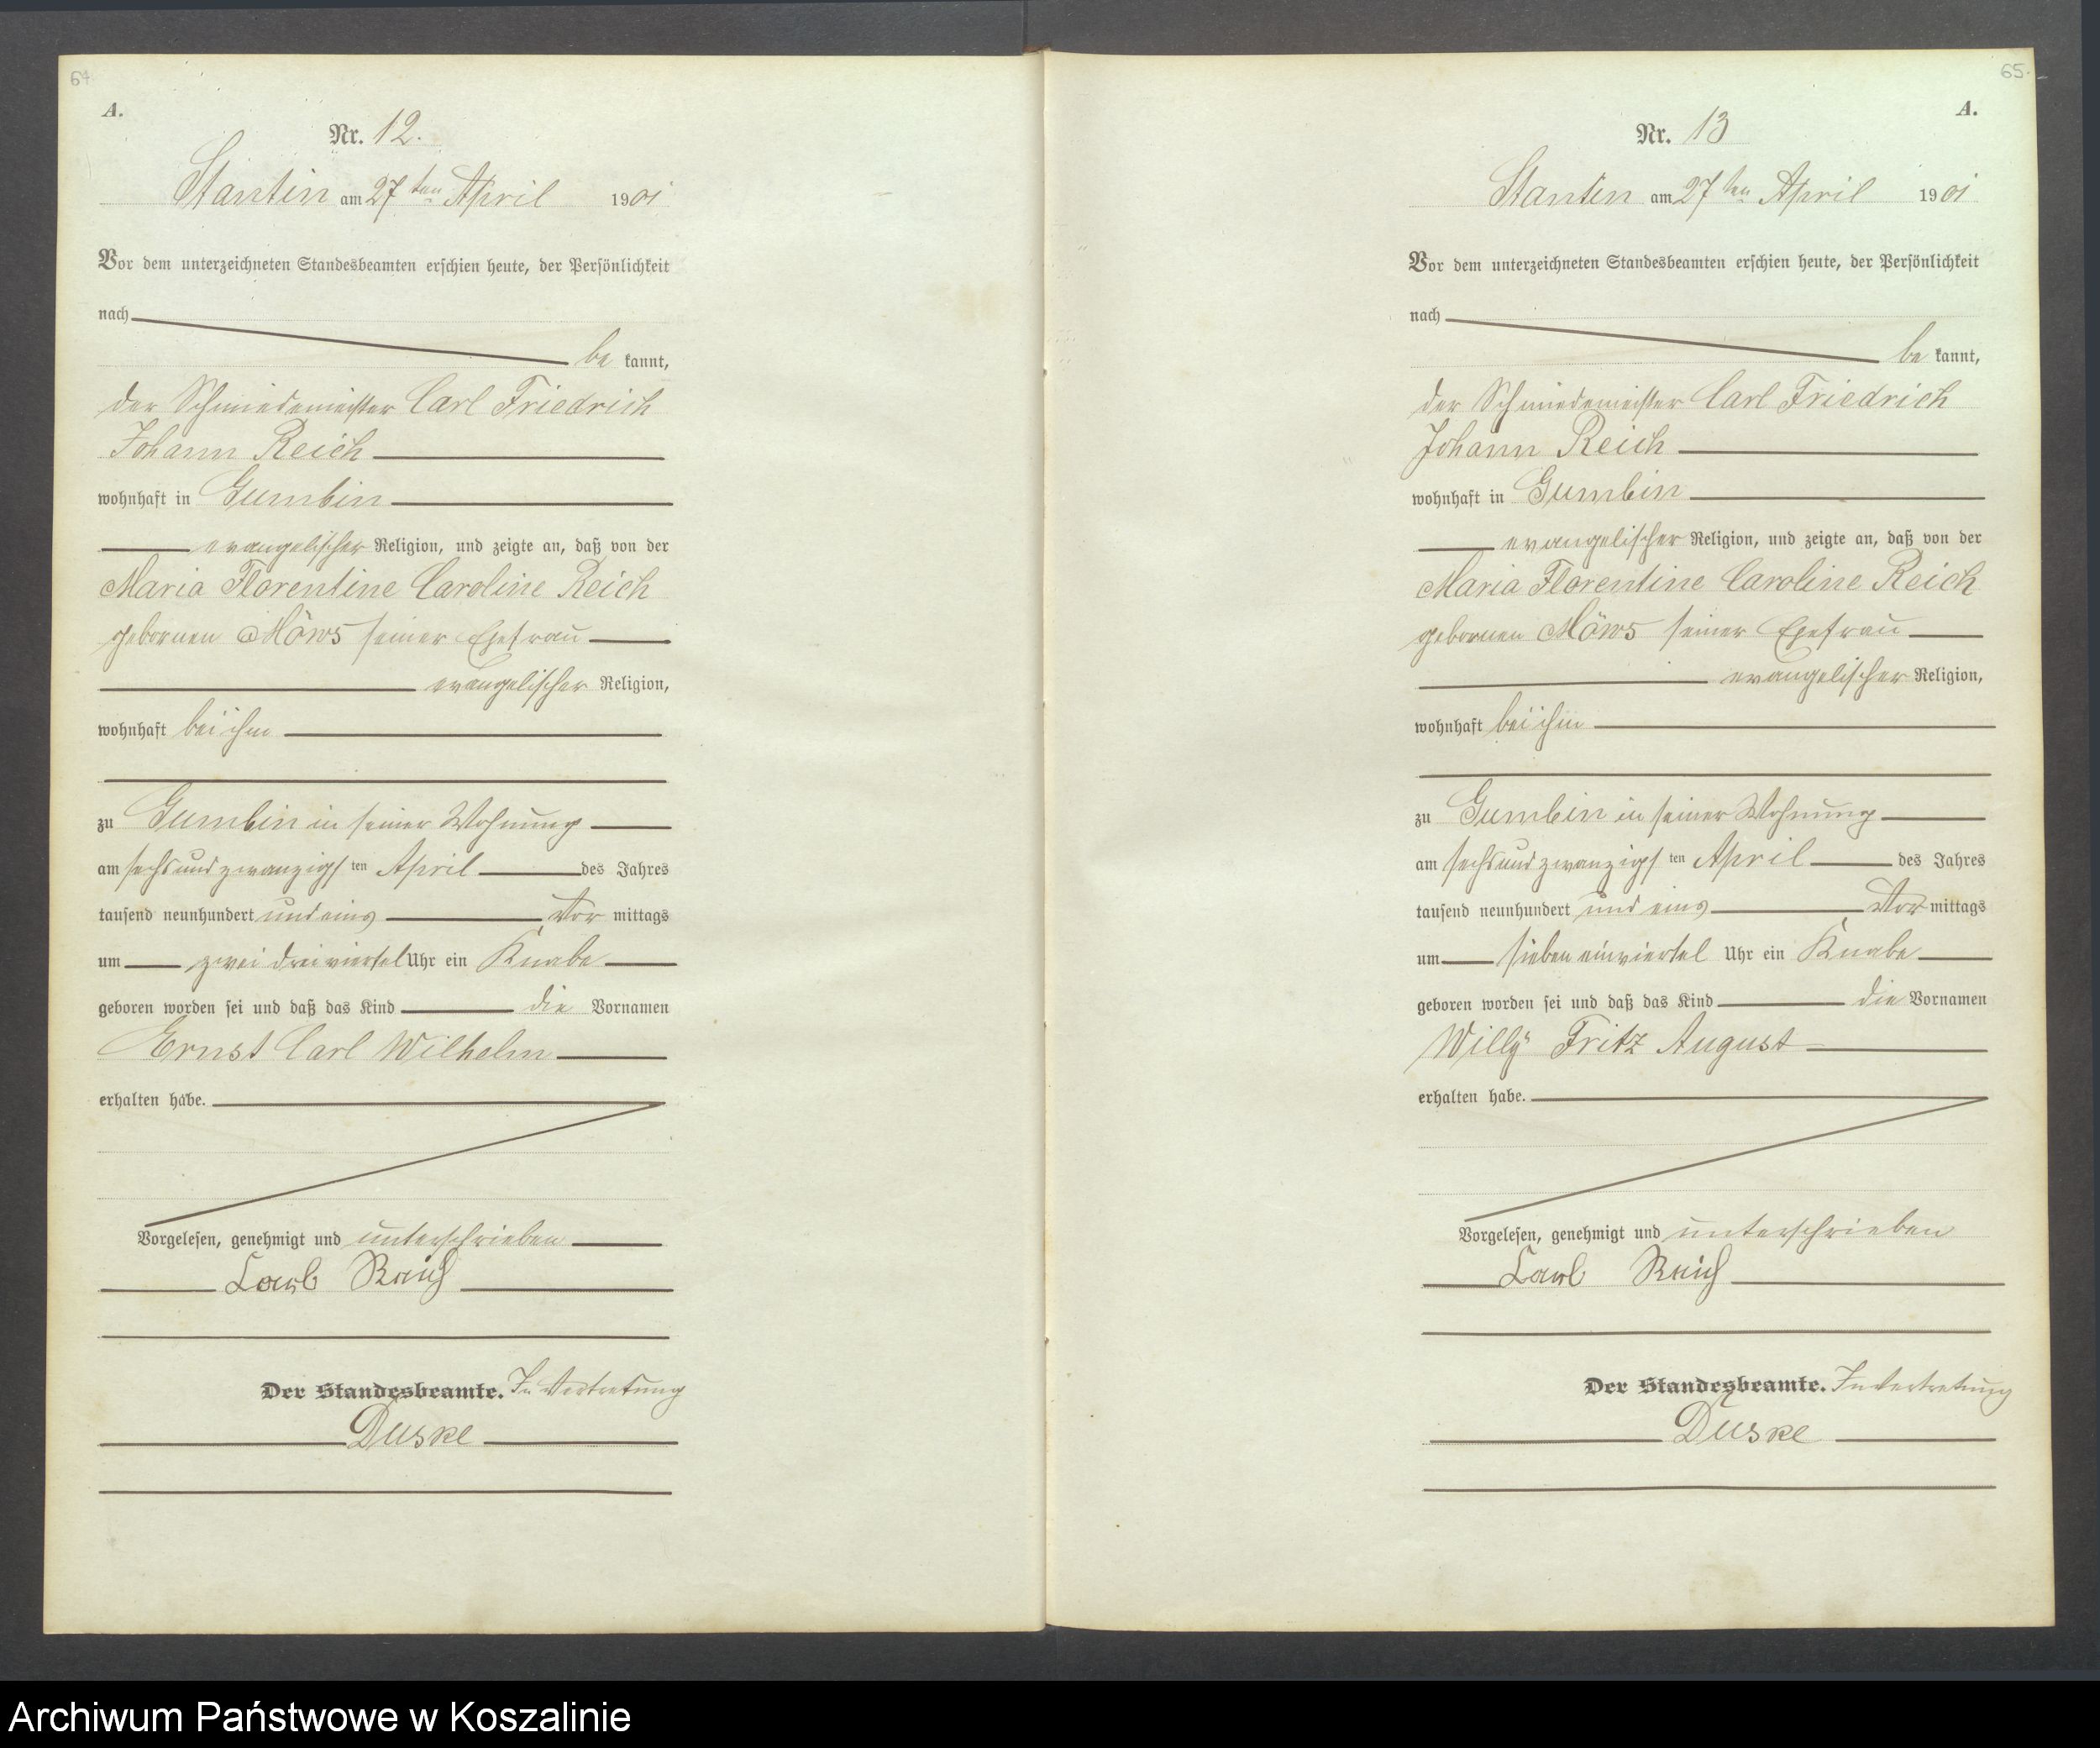 64
A.
Nr. 12.
Stantin am 27ten April 1901
Vor dem unterzeichneten Standesbeamten erschien heute, der Persönlichkeit
nach
be kannt,
der Schmiedemeister Carl Friedrich
Johann Reich
wohnhaft in Gumbin
evangelischer Religion, und zeigte an, daß von der
Maria Florentine Caroline Reich
gebornen Möws seiner Ehefrau
evangelischer Religion,
wohnhaft bei ihm
zu Gumbin in seiner Wohnung
am sechsundzwanzigsten April des Jahres
tausend neunhundert und eins Vor mittags
um zwei dreiviertel Uhr ein Knabe
geboren worden sei und daß das Kind die Vornamen
Ernst Carl Wilhelm
erhalten habe.
Vorgelesen, genehmigt und unterschrieben
Carl Reich
Der Standesbeamte. In Vertretung
Duske
65.
A.
Nr. 13
Stantin am 27ten April 1901
Vor dem unterzeichneten Standesbeamten erschien heute, der Persönlichkeit
nach
be kannt,
der Schmiedemeister Carl Friedrich
Johann Reich
wohnhaft in Gumbin
evangelischer Religion, und zeigte an, daß von der
Maria Florentine Caroline Reich
gebornen Möws seiner Ehefrau
evangelischer Religion,
wohnhaft bei ihm
zu Gumbin in seiner Wohnung
am sechsundzwanzigsten April des Jahres
tausend neunhundert und eins Vor mittags
um sieben einviertel Uhr ein Knabe
geboren worden sei und daß das Kind die Vornamen
Willy Fritz August
erhalten habe.
Vorgelesen, genehmigt und unterschrieben
Carl Reich
Der Standesbeamte. In Vertretung
Duske
Archiwum Państwowe w Koszalinie